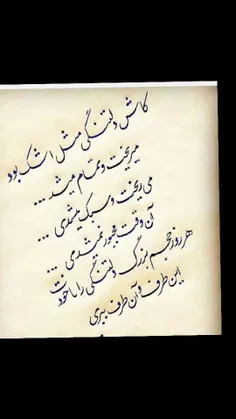 کاش دلتنگی مثل اشک بود
میریخت و تمام میشد ...
می ریخت و سبک میشدی ...
آن وقت مجبور نمیشدی ...
هر روز حجم بزرگ دلتنگی را با خودت
این طرف و آن طرف ببری